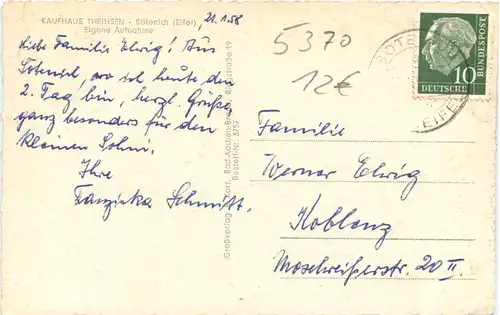 KAUFHAUS THEHSEN - Sötenich (Eifel)
Eigene Aufnahme
21.1.58
Liebe Familie Elwig! Aus
Sötenich, wo ich heute den
2. Tag bin, herzl. Grüße,
ganz besonders für den
kleinen Sohn.
Ihre
Franziska Schmitt.
Bestell-Nr. 3757
5370
12€
10
DEUTSCHE
BUNDESPOST
EIFEL
Familie
Werner Elwig
Koblenz
Moselweißerstr. 20 II.